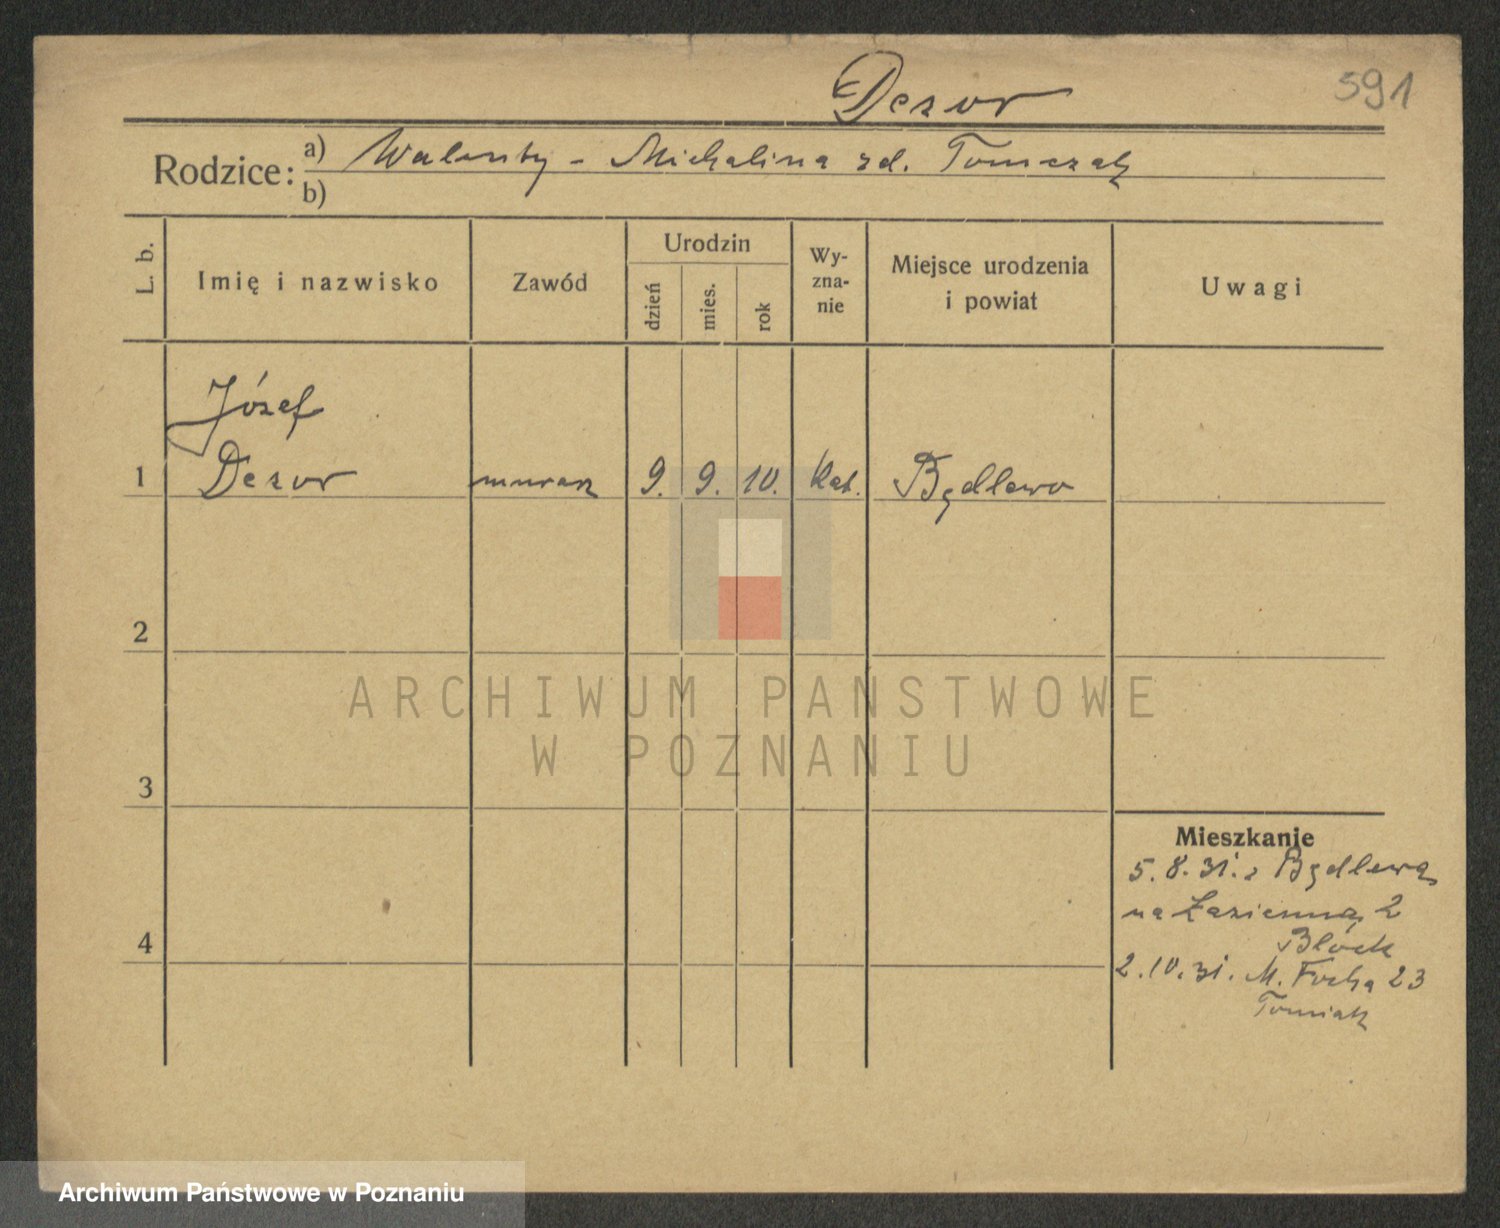 Dezor
591
Rodzice: a) Walenty - Michalina zd. Tomczak
b)
L. b.
Imię i nazwisko
Zawód
Urodzin
dzień
mies.
rok
Wy-
zna-
nie
Miejsce urodzenia
i powiat
Uwagi
Józef
1 Dezor murarz 9. 9. 10. Kat. Będlewo
2
ARCHIWUM PAŃSTWOWE
W POZNANIU
3
Mieszkanie
5.8.31. z Będlewa
na Łazienną 2
Block
4
2.10.31. M. Focha 23
Tomiak
Archiwum Państwowe w Poznaniu